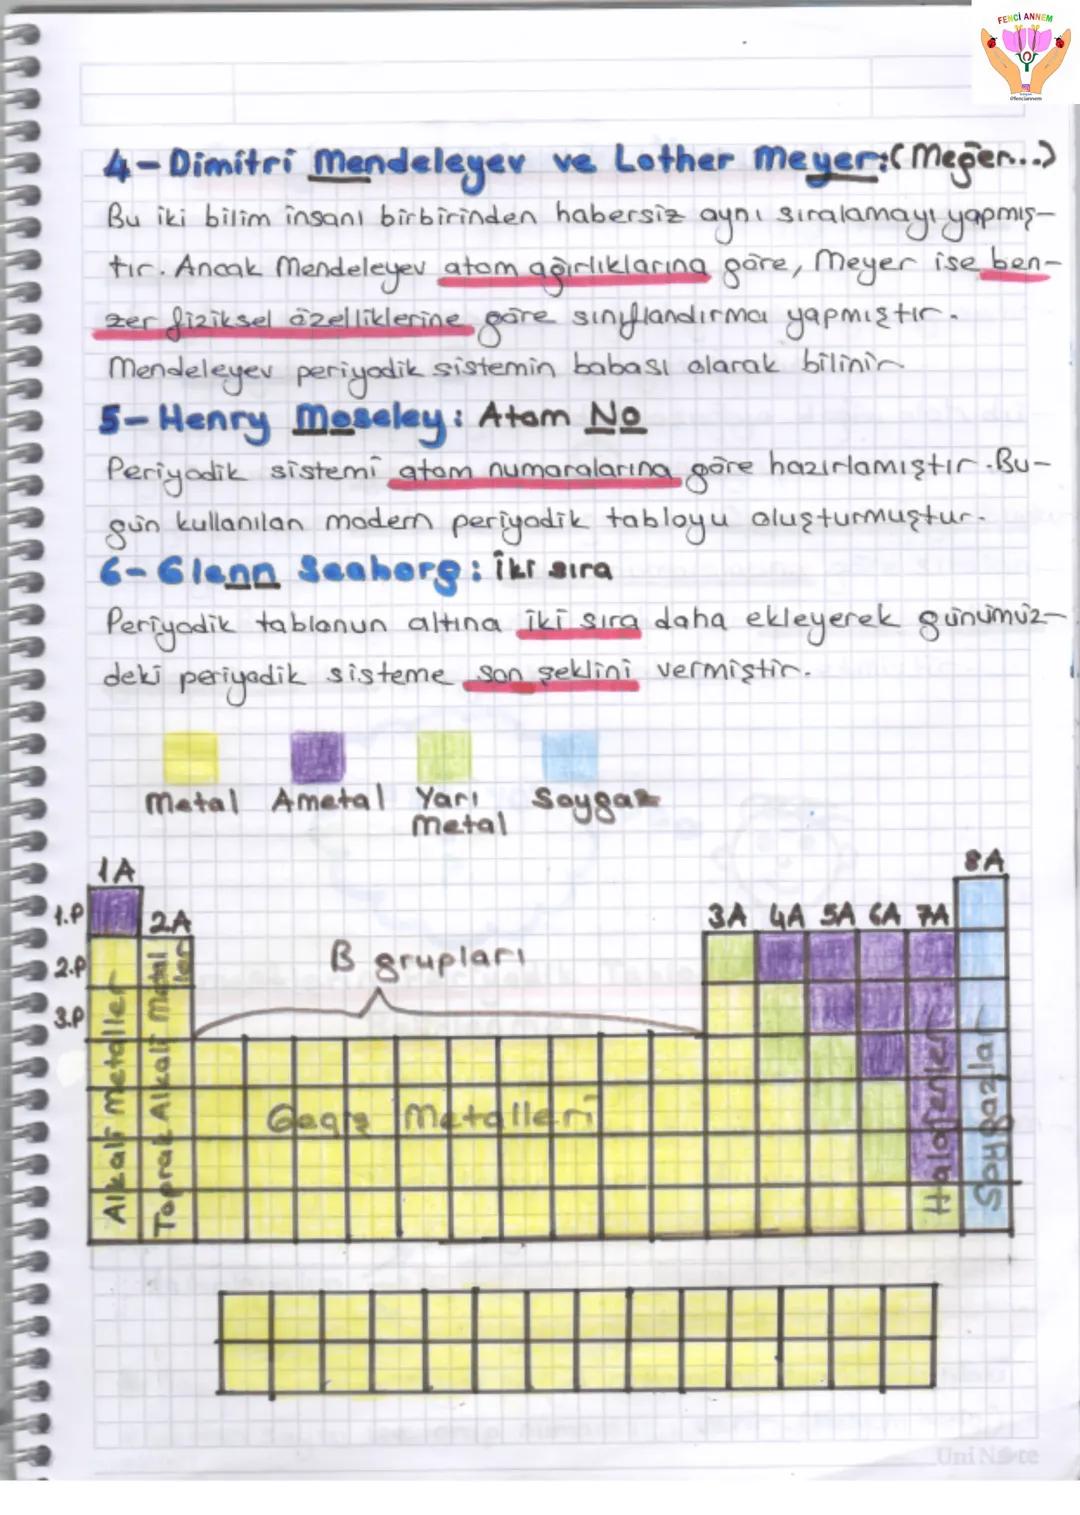 FENCİ ANNEM
@fenciannem
4-Dimitri Mendeleyev ve Lother Meyer:(Meğer...)
Bu iki bilim insanı birbirinden habersiz aynı sıralamayı yapmış-
tır. Ancak Mendeleyev atom ağırlıklarına göre, Meyer ise ben-
zer fiziksel özelliklerine göre sınıflandırma yapmıştır.
Mendeleyev periyodik sistemin babası olarak bilinir
5-Henry Moseley: Atom No
Periyodik sistemi atom numaralarına göre hazırlamıştır. Bu-
gün kullanılan modern periyodik tabloyu oluşturmuştur.
6-Glenn Seaborg: İki sıra
Periyodik tablonun altına iki sıra daha ekleyerek günümüz-
deki periyodik sisteme son şeklini vermiştir.
Metal Ametal Yarı Metal Soygaz
1A 8A
1.P 2A 3A 4A 5A 6A 7A
2.P B grupları
3.P
Alkali Metaller
Toprak Alkali Metaller
Geçiş Metalleri
Halojenler
Soygazlar
UniNote